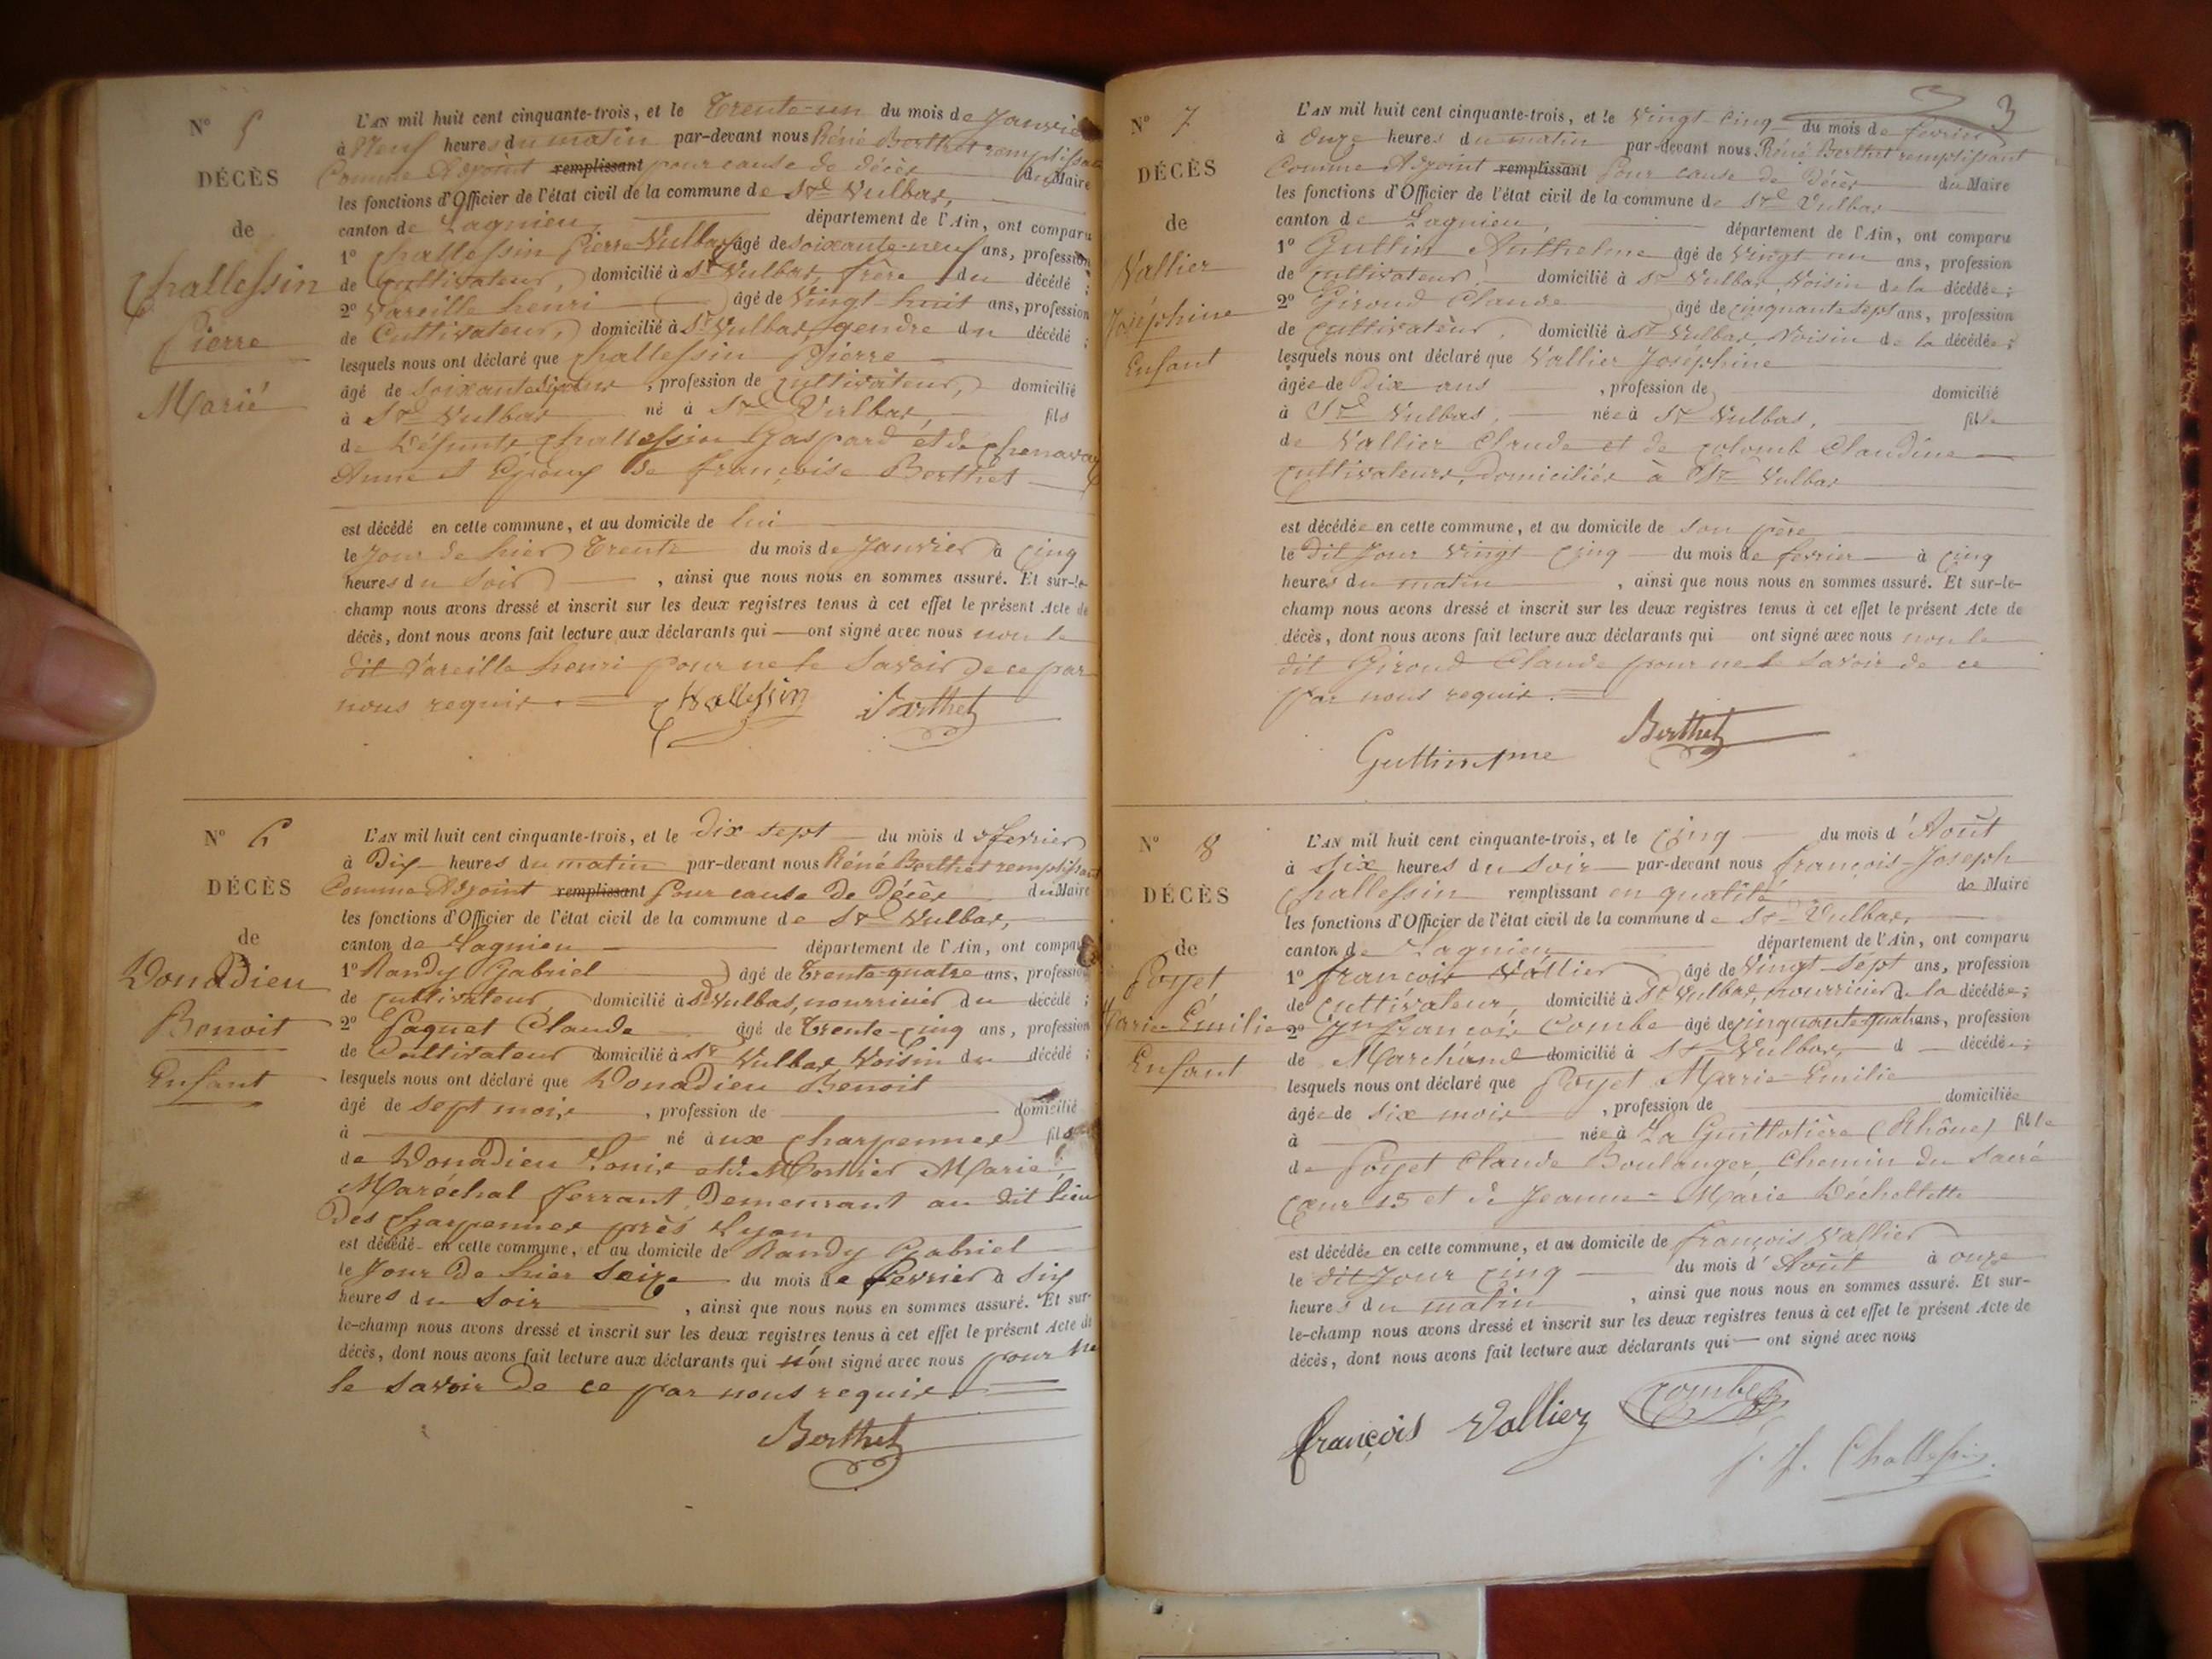 N° 5
DÉCÈS
de
Challessin
Pierre
Marié
L'AN mil huit cent cinquante-trois, et le Trente-un du mois de Janvier
à Neuf heures du matin par-devant nous Réné Berthet remplissant
Comme Adjoint remplissant pour cause de décès du Maire
les fonctions d'Officier de l'état civil de la commune de St Vulbas,
canton de Lagnieu département de l'Ain, ont comparu
1° Challessin Pierre Vulbas âgé de soixante-neuf ans, profession
de Cultivateur, domicilié à St Vulbas, frère du décédé ;
2° Vareille henri âgé de Vingt huit ans, profession
de Cultivateur, domicilié à St Vulbas, gendre du décédé ;
lesquels nous ont déclaré que Challessin Pierre
âgé de , profession de Cultivateur, domicilié
à St Vulbas né à St Vulbas, fils
de Défunts Challessin Gaspard et de Chenavay
Anne et Epoux de françoise Berthet
est décédé en cette commune, et au domicile de lui
le Jour de hier Trente du mois de Janvier à Cinq
heures du Soir , ainsi que nous nous en sommes assuré. Et sur-le-
champ nous avons dressé et inscrit sur les deux registres tenus à cet effet le présent Acte de
décès, dont nous avons fait lecture aux déclarants qui — ont signé avec nous non le
dit Vareille henri pour ne le Savoir de ce par
nous requis.
Challessin Berthet
N° 6
DÉCÈS
de
Donadieu
Benoit
Enfant
L'AN mil huit cent cinquante-trois, et le dix sept du mois de fevrier
à Dix heures du matin par-devant nous Réné Berthet remplissant
Comme Adjoint remplissant Pour cause de Décès du Maire
les fonctions d'Officier de l'état civil de la commune de St Vulbas,
canton de Lagnieu département de l'Ain, ont comparu
1° Randy Gabriel âgé de Trente-quatre ans, profession
de Cultivateur domicilié à St Vulbas, nourricier du décédé ;
2° Paquet Claude âgé de Trente-Cinq ans, profession
de Cultivateur domicilié à St Vulbas Voisin du décédé ;
lesquels nous ont déclaré que Donadieu Benoit
âgé de sept mois , profession de domicilié
à né aux Charpennes fils
de Donadieu Louis et de Marie,
Maréchal ferrant Demeurant au dit lieu
Des Charpennes près Lyon
est décédé en cette commune, et au domicile de Randy Gabriel
le Jour De hier Seize du mois de fevrier à six
heures du Soir , ainsi que nous nous en sommes assuré. Et sur-
le-champ nous avons dressé et inscrit sur les deux registres tenus à cet effet le présent Acte de
décès, dont nous avons fait lecture aux déclarants qui n'ont signé avec nous pour ne
le savoir De ce par nous requis.
Berthet
3
N° 7
DÉCÈS
de
Vallier
Joséphine
Enfant
L'AN mil huit cent cinquante-trois, et le Vingt Cinq du mois de fevrier
à Onze heures du matin par-devant nous Réné Berthet remplissant
Comme Adjoint remplissant Pour cause de Décès du Maire
les fonctions d'Officier de l'état civil de la commune de St Vulbas
canton de Lagnieu, département de l'Ain, ont comparu
1° Guttin Anthelme âgé de Vingt un ans, profession
de Cultivateur, domicilié à St Vulbas, Voisin de la décédée ;
2° Giroud Claude âgé de Cinquante Sept ans, profession
de Cultivateur, domicilié à St Vulbas, Voisin de la décédée ;
lesquels nous ont déclaré que Vallier Joséphine
âgée de Dix ans , profession de domicilié
à St Vulbas, née à St Vulbas, fille
de Vallier Claude et de Colomb Claudine
Cultivateurs, Domiciliés à St Vulbas
est décédée en cette commune, et au domicile de son père
le Dit Jour Vingt Cinq du mois de fevrier à Cinq
heures du matin , ainsi que nous nous en sommes assuré. Et sur-le-
champ nous avons dressé et inscrit sur les deux registres tenus à cet effet le présent Acte de
décès, dont nous avons fait lecture aux déclarants qui ont signé avec nous non le
dit Giroud Claude pour ne le Savoir de ce
par nous requis.
Guttin Ame Berthet
N° 8
DÉCÈS
de
Poyet
Marie Émilie
Enfant
L'AN mil huit cent cinquante-trois, et le Cinq du mois d'Août
à Six heures du Soir par-devant nous françois-Joseph
Challessin remplissant en qualité de Maire
les fonctions d'Officier de l'état civil de la commune de St Vulbas,
canton de Lagnieu département de l'Ain, ont comparu
1° françois Vallier âgé de Vingt-Sept ans, profession
de Cultivateur, domicilié à St Vulbas, nourricier de la décédée ;
2° Jn François Combe âgé de Cinquante quatre ans, profession
de Marchand domicilié à St Vulbas, d — décédée ;
lesquels nous ont déclaré que Poyet Marie Emilie
âgée de six mois , profession de domiciliée
à née à La Guillotière (Rhône) fille
de Poyet Claude Boulanger, Chemin du Sacré
Cœur 15 et de Jeanne-Marie Déchelette
est décédée en cette commune, et au domicile de françois Vallier
le dit Jour Cinq du mois d'Août à onze
heures du matin , ainsi que nous nous en sommes assuré. Et sur-
le-champ nous avons dressé et inscrit sur les deux registres tenus à cet effet le présent Acte de
décès, dont nous avons fait lecture aux déclarants qui — ont signé avec nous
françois Vallier Combe
f. J. Challessin